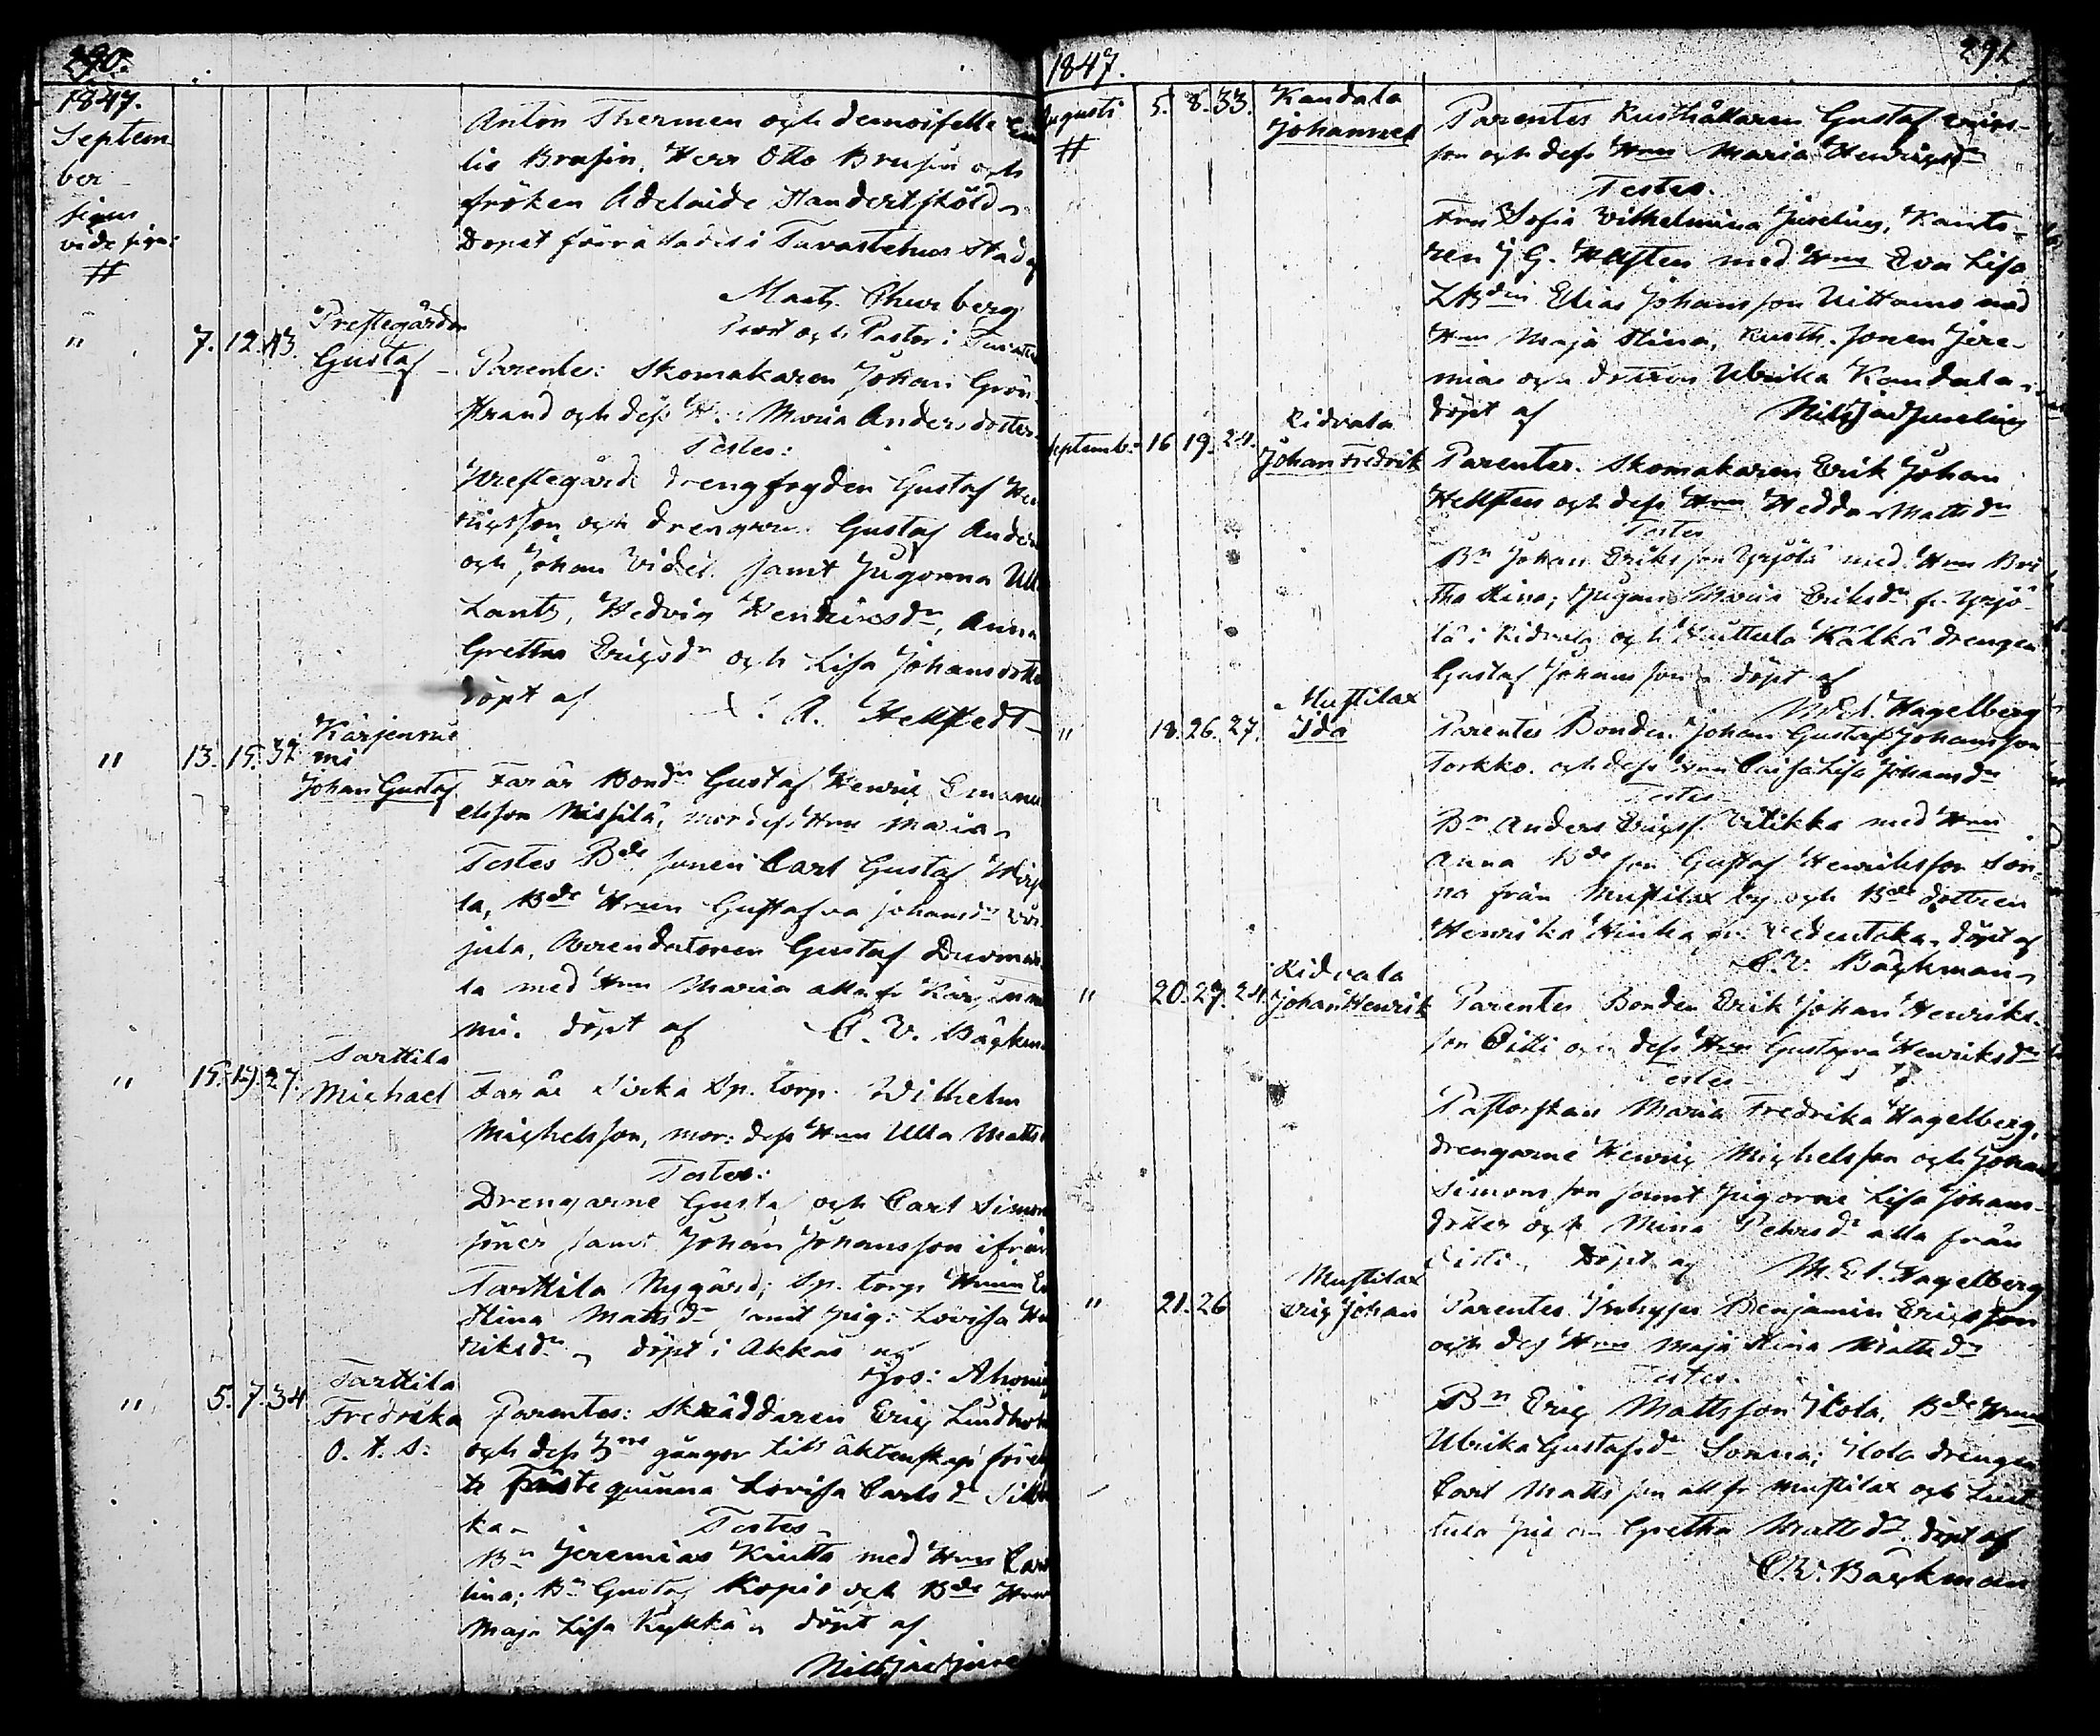 290.
1847.
Septem
ber
#
Anton Thermen och demoiselle
lie Brusin, Herr Otto Brusin och
fröken Adelaide Standertsköld
Dopet förrättadt i Tavastehus Stad af
Churberg
Prost och Pastor i
" 7. 12. 43.
Prestegården
Gustaf
Parentes: Skomakaren Johan Grön
strand och dess Maria Andersdotter
Testes:
Prestegårds drengfogden Gustaf Hen
ricsson och drengarne Gustaf Anders
och Johan Videl samt Pigorna Ulla
Lants, Hedvig Hendricsdr, Anna
Gretha Ericsdr och Lisa Johansdotter
döpt af A. Hellstedt
" 13. 15. 32
Kärjenniemi
Johan Gustaf
Far är Bondn Gustaf Henric Emanu
elsson Nissilä, mor dess Hru Maria
Testes Bde sonen Carl Gustaf
la, Bde Hrun Gustafva Johansdr
jula, Arrendatoren Gustaf
la med Hru Maria alla fr Kärjennie
mi. döpt af C. V. Bäckman
" 15. 19. 27.
Tarttila
Michael
Far är Sp. torp. Wilhelm
Michelsson, mor: dess Hru Ulla Matts
Testes:
Drengarne Gustaf och Carl Simons
söner samt Johan Johansson ifrån
Tarttila Nygård; Sp. torp. Hrun
Stina Mattsdr samt pig: Lovisa Hen
riksdr döpt i Akkas af
Jos: Ahonius
" 5. 7. 34
Tarttila
Fredrika
O. Ä. S:
Parentes: Skräddaren Eric Lindholm
och dess 3ne gångor till äktenskap
te Fästeqvinna Lovisa Carlsdr
ka Testes
Bn Jeremias Knuttu med Hru Caro
lina; Bn Gustaf och Bde Hru
Maja Lisa döpt af
Nils Jac Juselius
1847. 291
Augusti
#
5. 8. 33.
Kandala
Johannes
Parentes Rusthållaren Gustaf Erics
son och dess Hru Maria Henricsdr
Testes.
Fru Sofia Vilhelmina Juselius, Kanto
ren J. G. Hellsten med Hru Eva Lisa
Elias Johansson Uittamo med
Hru Maja Stina, Rusth. sonen Jere
mias och dottren Ulrika Kandala
döpt af Nils Jac Juselius
Septemb: 16 19. 24.
Ridvala
Johan Fredrik
Parentes. Skomakaren Erik Johan
Hellsten och dess Hru Hedda Mattsdr
Testes
Bn Johan Eriksson Yrjölä med Hru Bri
tha Stina, Pigan Maria Eriksdr fr. Yrjö
lä i Ridvala och Huittula Kälkä drengen
Gustaf Johansson döpt af
M. El. Hagelberg
" 18. 26. 27.
Mustilax
Ida
Parentes Bonden Johan Gustaf Johansson
Torkko och dess Hru Caisa Lisa Johansdr
Testes
Bn Anders Ericss. Vilikka med Hru
Anna Bde son Gustaf Henriksson Son
na från Mustilax by och Bde dottren
Henrika Hinka fr. Vedentaka, döpt af
C. V. Bäckman
" 20. 27. 24.
Ridvala
Johan Henrik
Parentes Bonden Erik Johan Henriks
son Eitti och dess Hru Gustafva Henriksdr
Testes
Pastorskan Maria Fredrika Hagelberg,
drengarne Henric Michelsson och Johan
Simonsson samt pigorne Lisa Johans
dotter och Mina Petersdr alla från
Döpt af M. El. Hagelberg
" 21. 26
Mustilax
Eric Johan
Parentes Inhyses Benjamin Ericsson
och dess Hru Maja Stina Mattsdr
Testes.
Bn Eric Mattsson Ilola, Bde Hrun
Ulrika Gustafsdr Sonna; Ilola drengen
Carl Mattsson all fr Mustilax och Huit
tula pigan Gretha Mattsdr döpt af
C. V. Bäckman